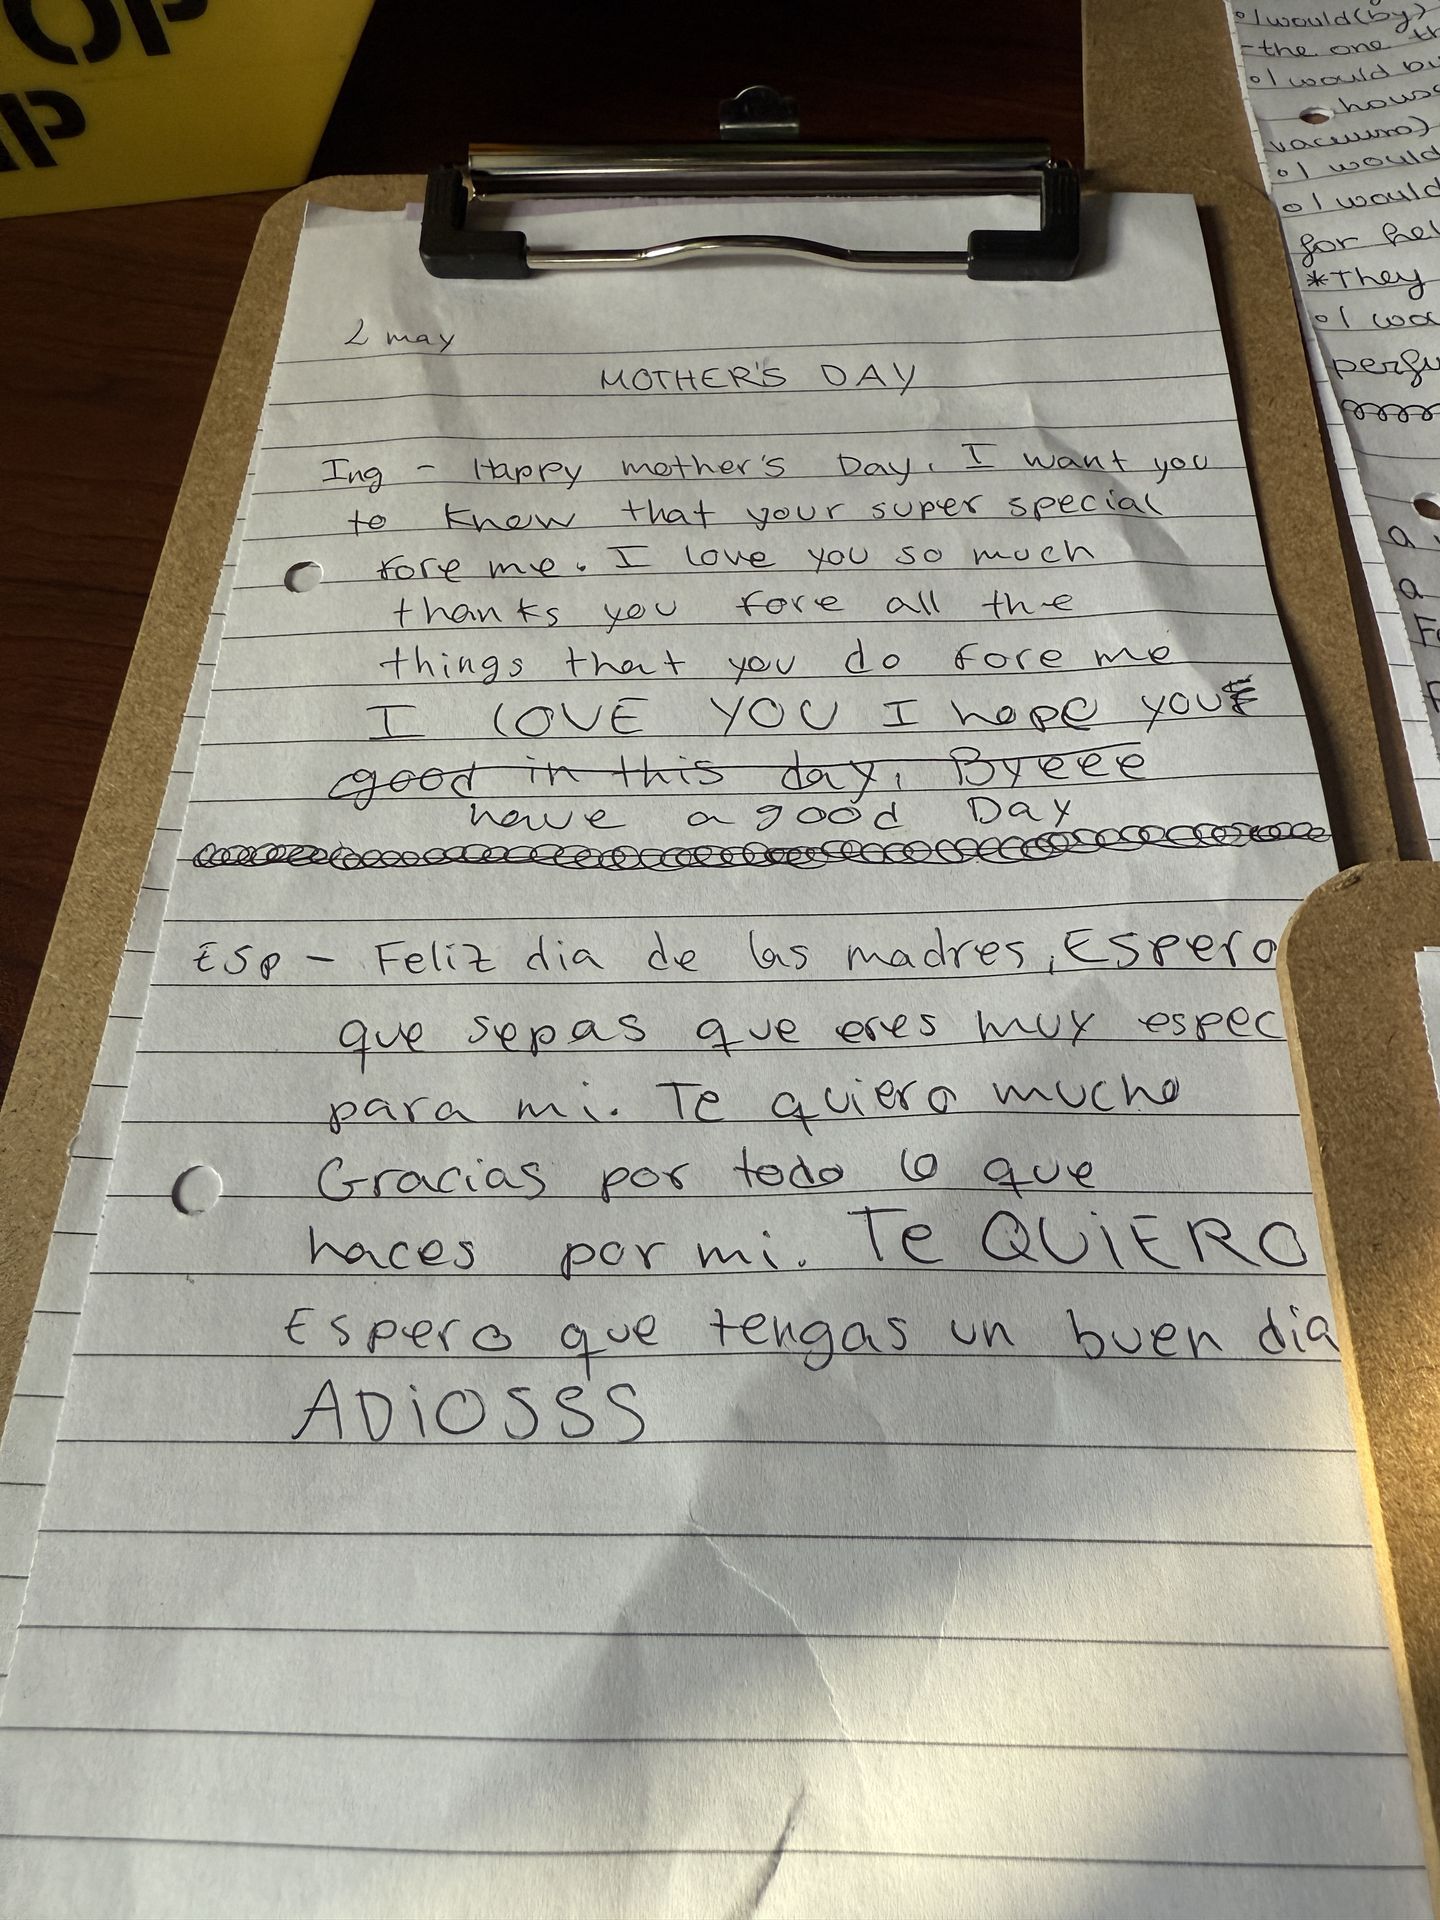 OP
2 may
MOTHER'S DAY
Ing - Happy mother's Day. I want you
to know that your super special
fore me. I love you so much
thanks you fore all the
things that you do fore me
I LOVE YOU I hope you
good in this day, Byeee
have a good Day
ESP - Feliz dia de las madres, Espero
que sepas que eres muy espec
para mi. Te quiero mucho
Gracias por todo lo que
haces por mi. Te QUiERO
Espero que tengas un buen dia
ADiOSSS
o I would (by)
- the one th
o I would bu
house
vacuums)
o I would
o I would
for hel
*They
o I wo
perfu
a
a